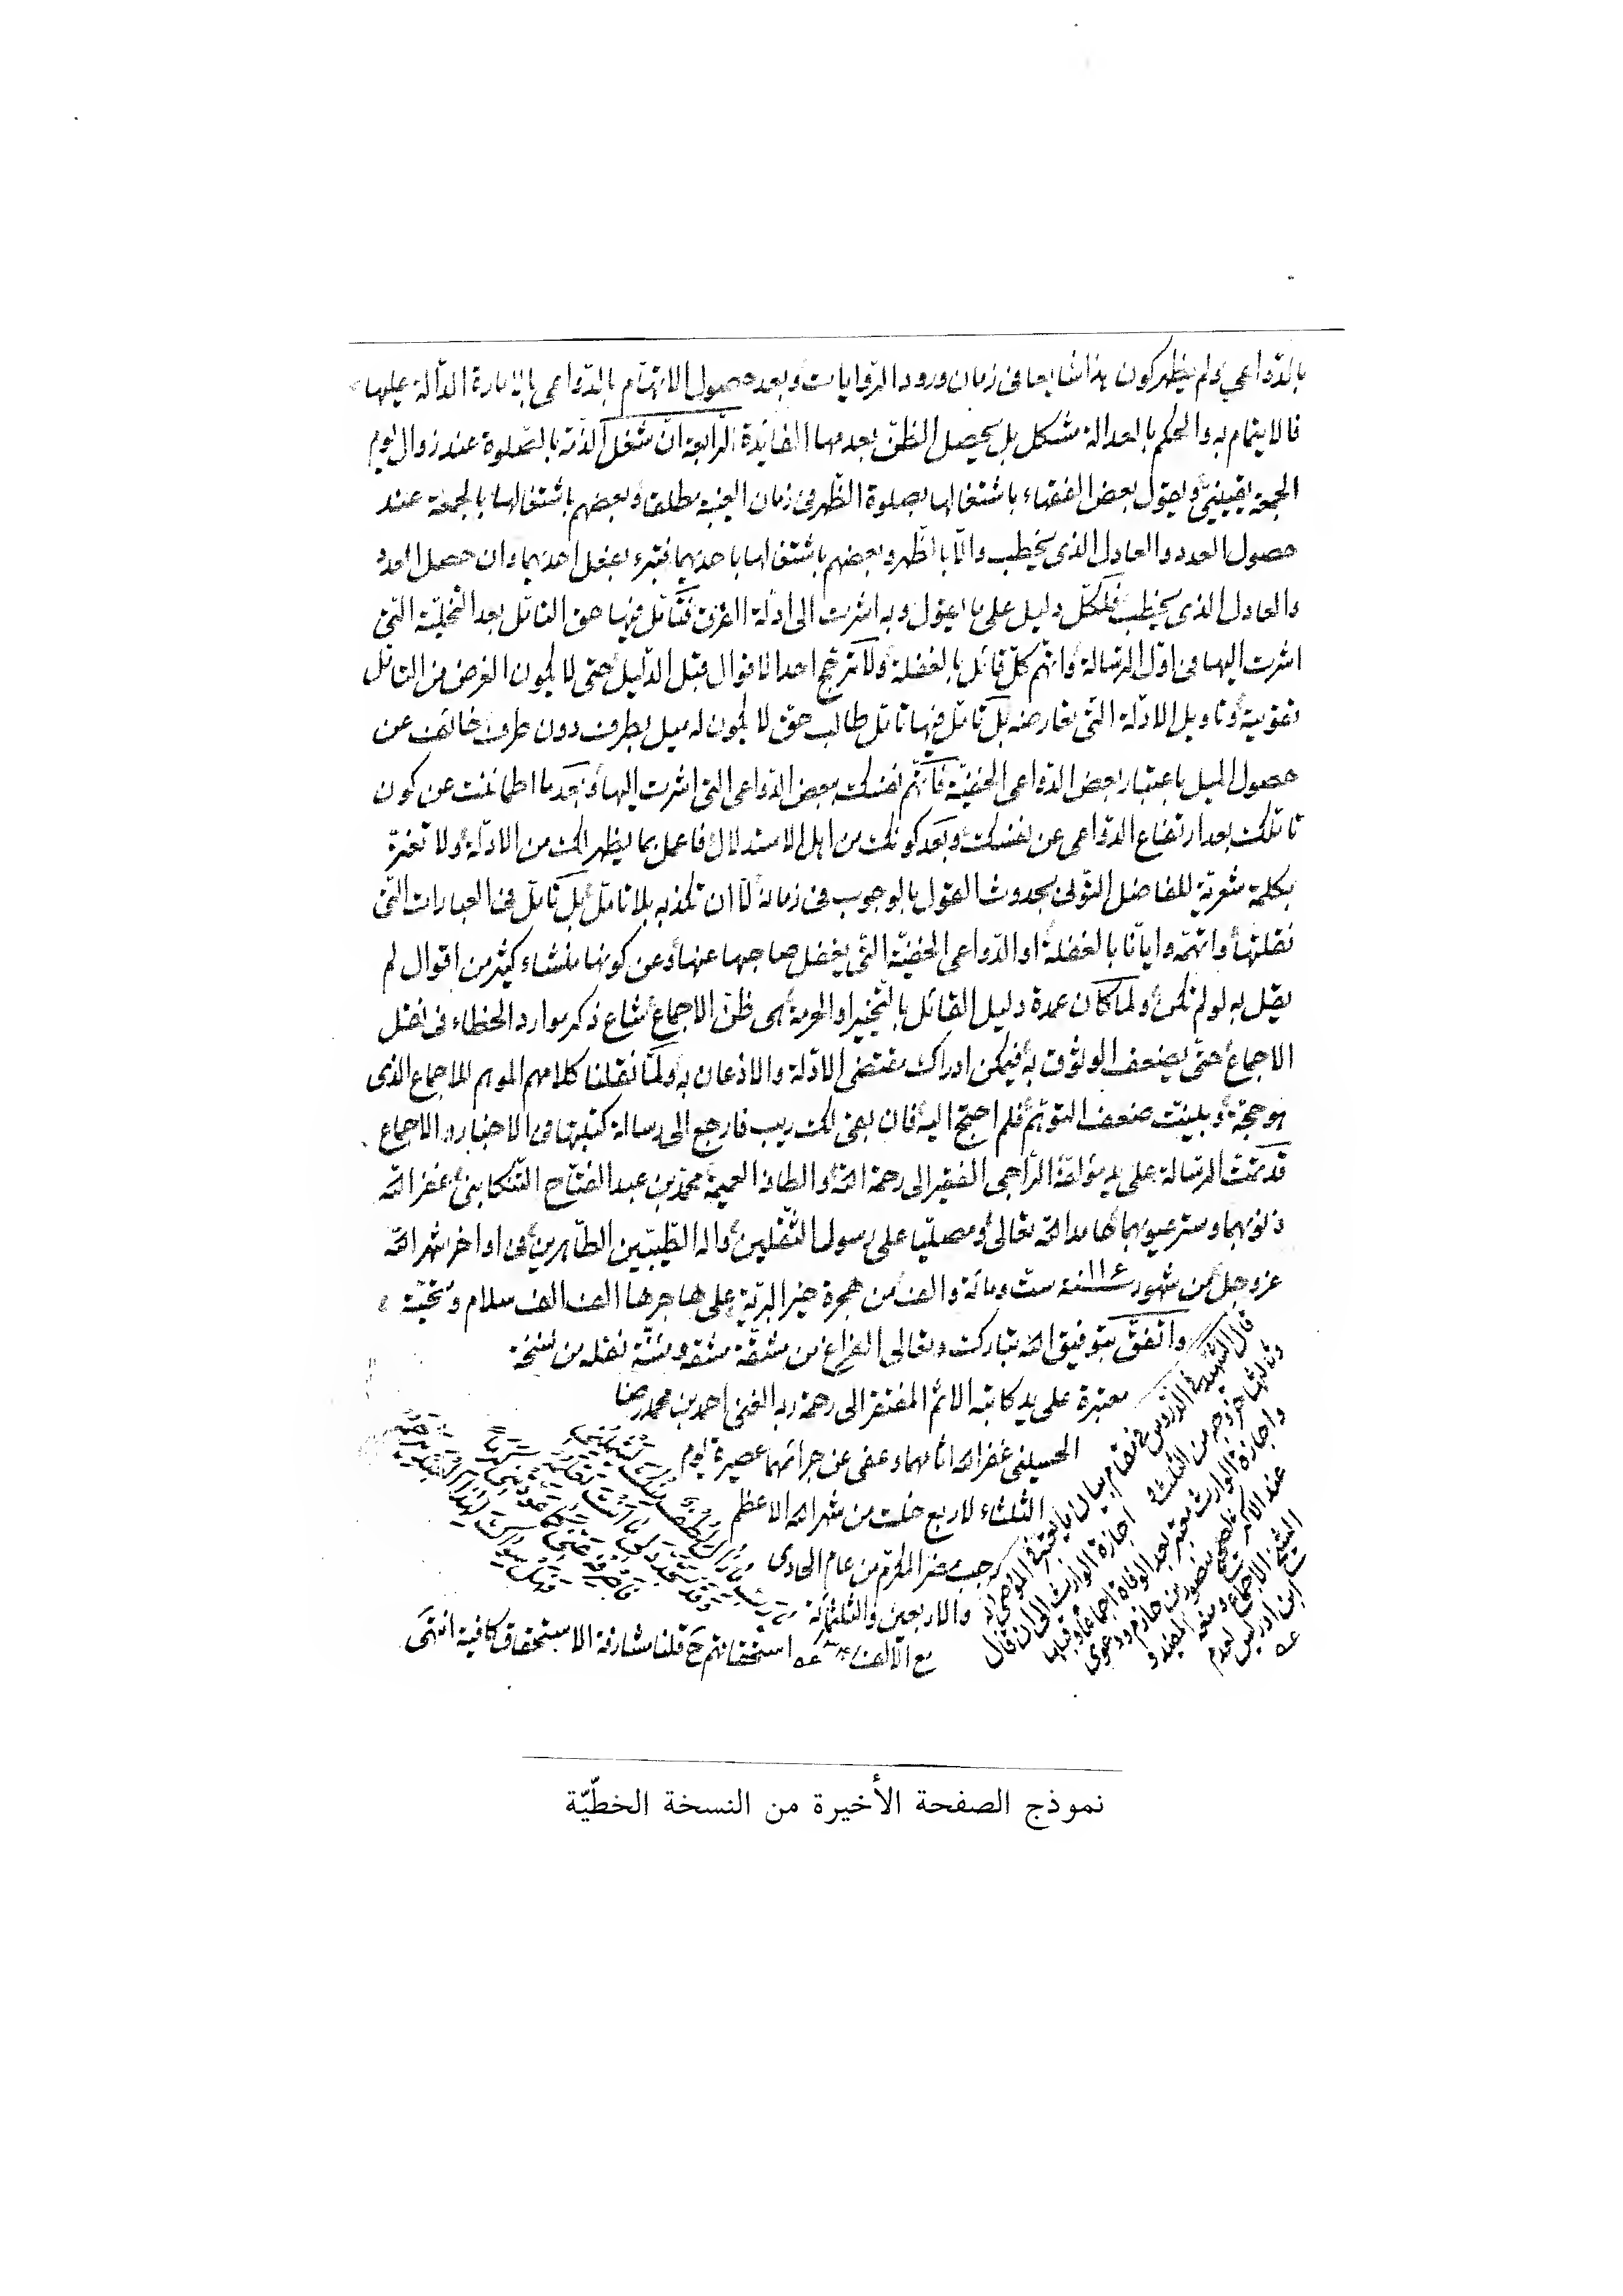 بالدّواعي ولم يظهر كون هذا شايعا في زمان ورود الرّوايات وبعد حصول الاتهام بالدّواعى بالامارة الدّالة عليها
فالايتمام به والحكم بالعدالة مشكل بل يحصل الظنّ بعدمها الفايدة الرّابعة انّ شغل الذّمة بالصّلوة عند زوال يوم
الجمعة يقينيّ ويقول بعض الفقهاء باشتغالها بصلوة الظّهر فى زمان الغيبة مطلقا وبعضهم باشتغالها بالجمعة عند
حصول العدد والعادل الذى يخطب والّا بالظّهر وبعضهم باشتغالها باحديهما فتبرء بفعل احديهما وان حصل العدد
والعادل الذى يخطب فلكلّ دليل على ما يقول وبه اشرت الى ادلّة الفرق فتأمّل فيها حق التامّل بعد التخلية التّى
اشرت اليها فى اوّل الرسالة واتّهم كلّ قائل بالغفلة ولا ترجّح احد الاقوال قبل الدّليل حتى لا يكون الغرض من التامّل
تقويته وتاويل الادلّة التّى تعارضه بل تامّل فيها تامّل طالب حق لا يكون له ميل بطرف دون طرف خائف عن
حصول الميل باعتبار بعض الدّواعى الخفيّة فاتّهم نفسك ببعض الدّواعى التى اشرت اليها وبعد ما اطمأننت عن كون
تامّلك بعد ارتفاع الدّواعى عن نفسك وبعد كونك من اهل الاستدلال فاعمل بما يظهر لك من الادلّة ولا تغترّ
بكلمة شعريّة للفاضل التّونى بحدوث القول بالوجوب فى زمانه لا ان تكذبه بلا تامّل بل تامّل فى العبارات التّى
نقلتها واتهمه وايّانا بالغفلة او الدّواعى الخفيّة التّى يغفل صاحبها عنها وعن كونها منشاء كثير من اقوال لم
يقل به لو لم تكن ولمّا كان عمدة دليل القائل بالتّخيير او الحرمة هى ظنّ الاجماع شاع ذكر موارد الخطاء فى نقل
الاجماع حتّى يضعف الوثوق به فيمكن ادراك مقتضى الادلّة والاذعان به ولمّا نقلنا كلامهم الموهم للاجماع الذى
هو حجّة وبيّنت ضعف التوهّم فلم احتج اليه فان بقى لك ريب فارجع الى رسالة كتبتها فى الاخبار والاجماع
قد تمّت الرسالة على يد مؤلّفه الرّاجى الفقير الى رحمة اللّه والطافه العميمة محمّد بن عبد الفتّاح التّنكابنى غفر اللّه
ذنوبهما وستر عيوبهما حامدا للّه تعالى ومصلّيا على رسول الثّقلين وآله الطّيبين الطّاهرين فى اواخر شهر اللّه
عزوجل من شهور سنة ١١٠٦ ستّ ومائة والف من هجرة خير البريّة على هاجرها الف الف سلام وتحيّة
واتّفق بتوفيق اللّه تبارك وتعالى الفراغ من مشقّة مشقه ونسّة نقله من نسخة
معتبرة على يد كاتبه الاثم المفتقر الى رحمة ربه الغنى احمد بن محمدرضا
الحسينى غفر اللّه اثامهما وعفى عن جرائمهما عصيرة يوم
الثلثاء لاربع خلت من شهر اللّه الاعظم
رجب مضر المكرّم من عام الحادى
والاربعين والثلثمائة
مع الالف
قال الشهيد فى الدّروس فى مقام بيان ما يعتبر فى الموصى به
وثالثها خروجه من الثلث او اجازة الوارث الى ان قال
واجازة الوارث معتبر بعد الوفاة اجماعا وقبلها
عند الاكثر لصحيح منصور بن حازم ودعوى
الشيخ الاجماع ومنعه المفيد و
ابن ادريس لعدم
استحقاقهم ح قلنا مشارفة الاستحقاق كافية انتهى
نموذج الصفحة الأخيرة من النسخة الخطّيّة